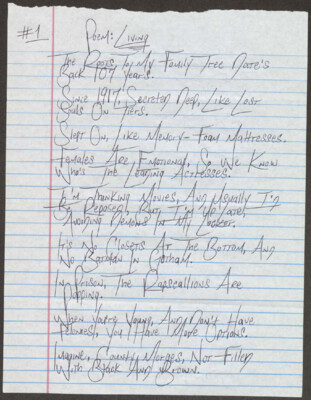 #1
Poem: Living
The Roots, to My Family Tree Date's
Back 107 years.
Since 1917, Secreted Deep, Like Lost
Souls On Tiers.
Slept On, Like Memory-Foam Mattresses.
Females Are Emotional, So We Know
Who's The Leading Actresses.
I'm Thanking Movies, And Usually I'm
Reposed, But, I'm Up Late,
Avoiding Demons In My Locker.
It's No Closets At The Bottom, And
No Batman In Gotham.
In Prison, The Rapscallions Are
Popping.
When You're Young, And Don't Have
Felonies, You Have More Options.
Imagine, County Morgues, Not Filled
With Black And Brown.